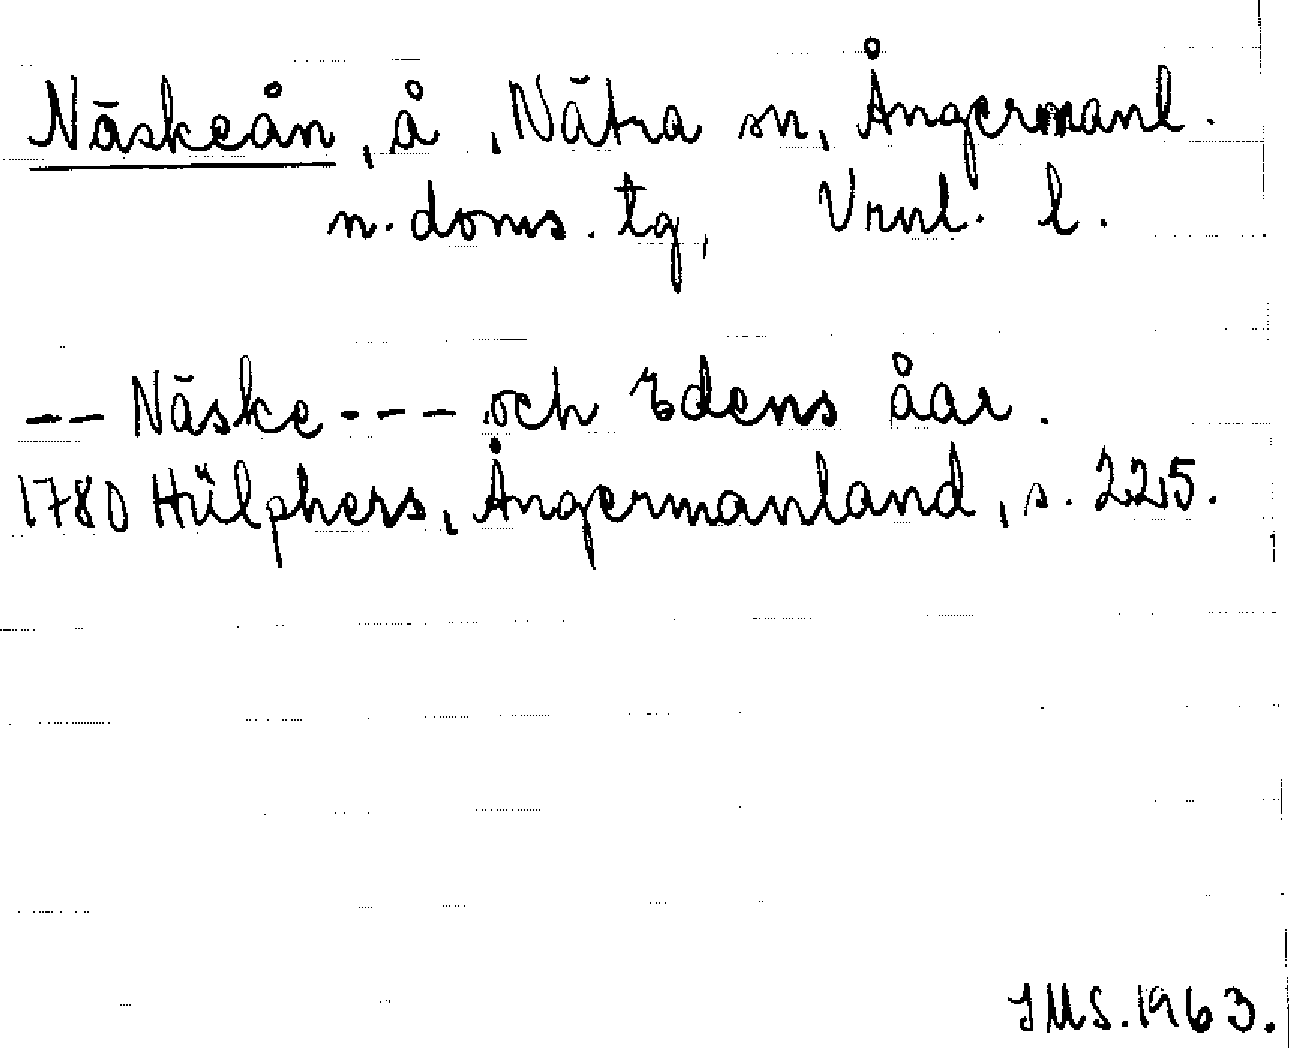 Näskeån, å, Nätra sn, Ångermanl.
n. doms. tg, Vrnl. l.
-- Näske --- och Edens åar.
1780 Hülphers, Ångermanland, s. 225.
IMS. 1963.